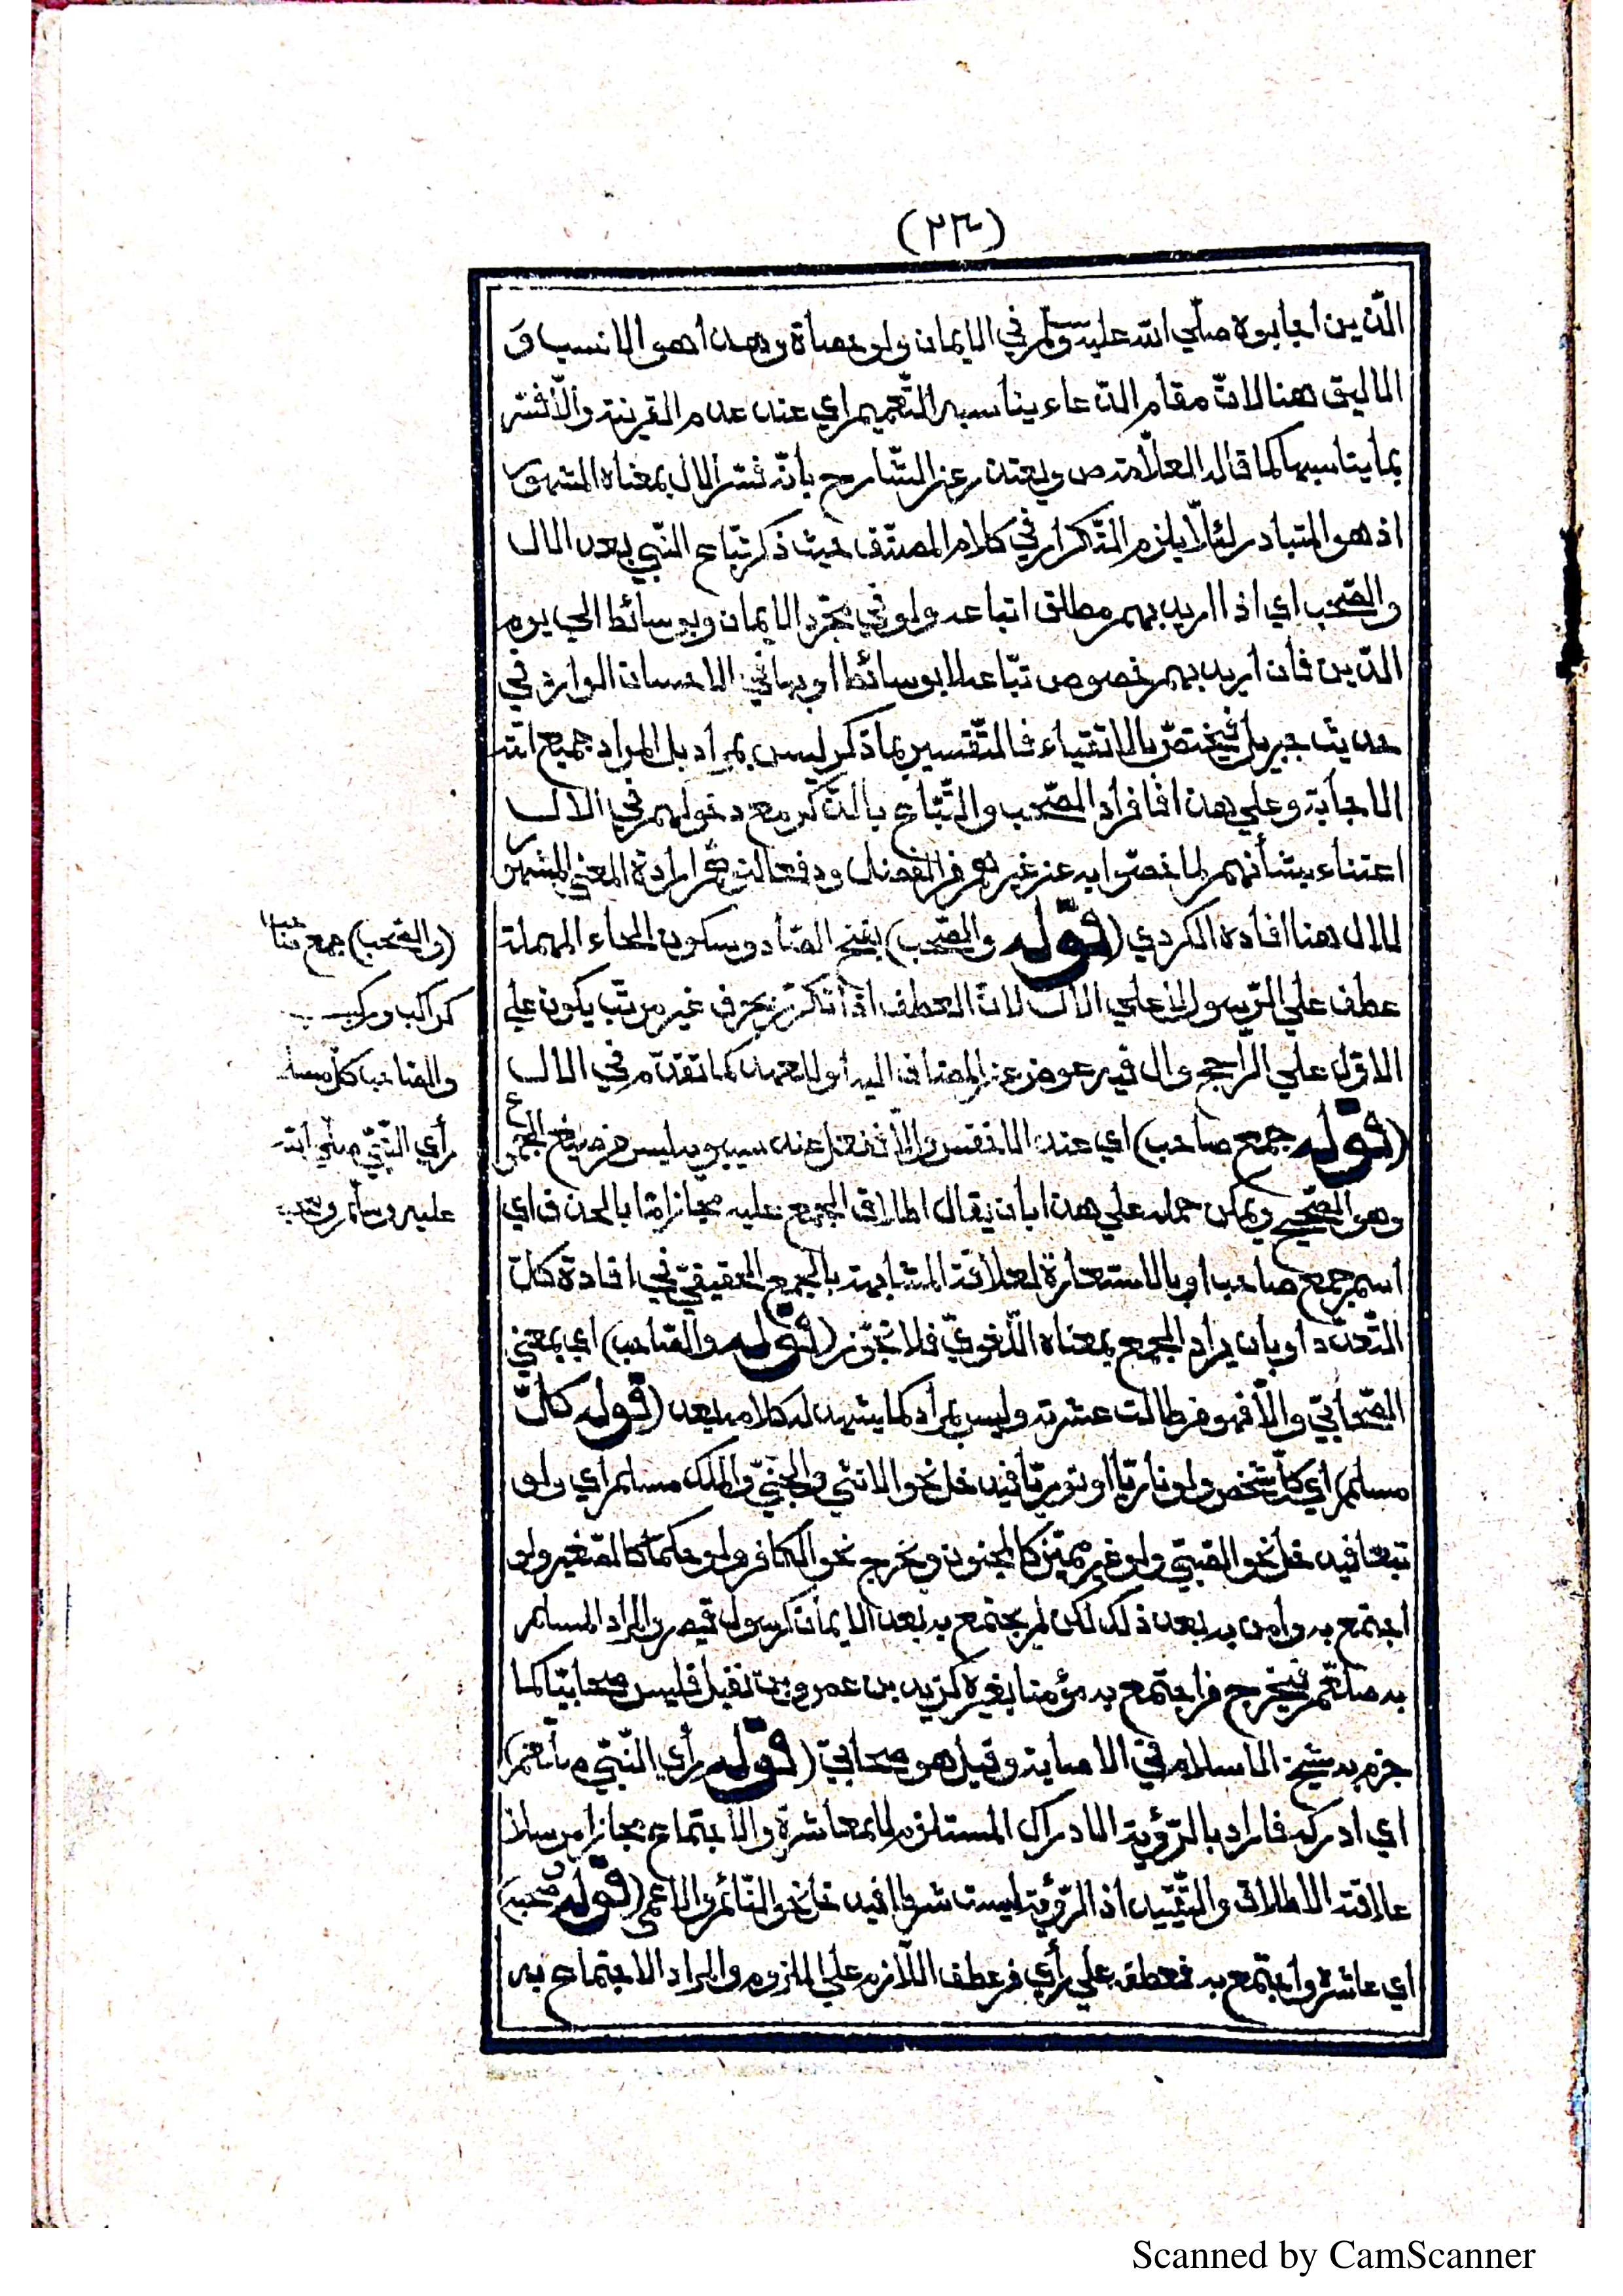 (٢٣)
الّذين أجابوه صلّى الله عليه وسلّم في الايمان ولو عصاة وهذا هو الانسب وَ
اللايق هنا لانّ مقام الدّعاء يناسبه التّعميم اي عند عدم القرينة والّا فسّر
بما يناسبها كما قاله العلّامة ص ويعتذر عن الشّارح بأنّه فسّر الال بمعناه المشهور
اذ هو المتبادر لئلّا يلزم التّكرار في كلام المصنّف حيث ذكر تبّاع النّبي بعد الال
والصّحب اي اذا اريد بهم مطلق اتباعه ولو في مجرّد الايمان وبوسائط الي يوم
الدّين فان أريد بهم خصوص تبّاعه لا بوسائط او بها في الاحسان الوارد في
حديث جبريل فيختصّ بالاتقياء فالتّفسير بما ذكر ليس بمراد بل المراد جميع امّة
الاجابة وعلي هذا فافراد الصّحب والتّبّاع بالذّكر مع دخولهم في الال
اعتناء بشأنهم لما خصّوا به عن غيرهم من الفضل ودفعا لتوهّم ارادة المعني المشهور
للال هنا افاده الكردي (قوله والصّحب) بفتح الصّاد وسكون الحاء المهملة
عطف علي الرّسول لا علي الال لانّ العطف اذا تكرّر بحرف غير مرتّب يكون علي
الاوّل علي الراجح وال فيه عوض عن المضاف اليه أو للعهد كما تقدّم في الال
(قوله جمع صاحب) اي عند الاخفش والّا فنقل عند سيبويه ليس من صيغ الجموع
وهو الصّحيح ويمكن حمله علي هذا بأن يقال اطلاق الجمع عليه مجاز امّا بالحذف اي
اسم جمع صاحب او بالاستعارة لعلاقة المشابهة بالجمع الحقيقيّ في افادة كلّ
التّعدّد أو بان يراد الجمع بمعناه اللّغويّ فلا تجوّز (قوله والصّاحب) اي بمعني
الصّحابيّ والّا فهو من طالت عشرته وليس بمراد كما يشهد له كلامه بعد (قوله كلّ
مسلم) أي كلّ شخص ولو ناريّا او نوريّا فيدخل نحو الانثي والجنّيّ والملك مسلم اي ولو
تبعا فيدخل نحو الصّبيّ ولو غير مميّز كالمجنون وخرج نحو الكافر ولو حكما كالصّغير ولو
اجتمع به وآمن به بعد ذلك لكن لم يجتمع به بعد الايمان كرسول قيصر والمراد المسلم
به صلعم فيخرج من اجتمع به مؤمنا بغيره كزيد بن عمرو بن نفيل فليس صحابيّا كما
جزم به شيخ الاسلام في الاصابة وقيل هو صحابيّ (قوله رأي النّبيّ صلعم)
اي ادركه فالمراد بالرّؤية الادراك المستلزم للمعاشرة والاجتماع مجازا مرسلا
علاقته الاطلاق والتّقييد اذ الرّؤية ليست شرطا فيدخل نحو النّائم والاعمي (قوله وصحبه)
أي عاشره واجتمع به فعطفه علي رأي من عطف اللّازم علي الملزوم والمراد الاجتماع به
(والصّحب) جمع صاحب
كراكب وركب
والصّاحب كلّ مسلم
رأي النّبيّ صلّي الله
عليه وسلّم وصحبه
Scanned by CamScanner